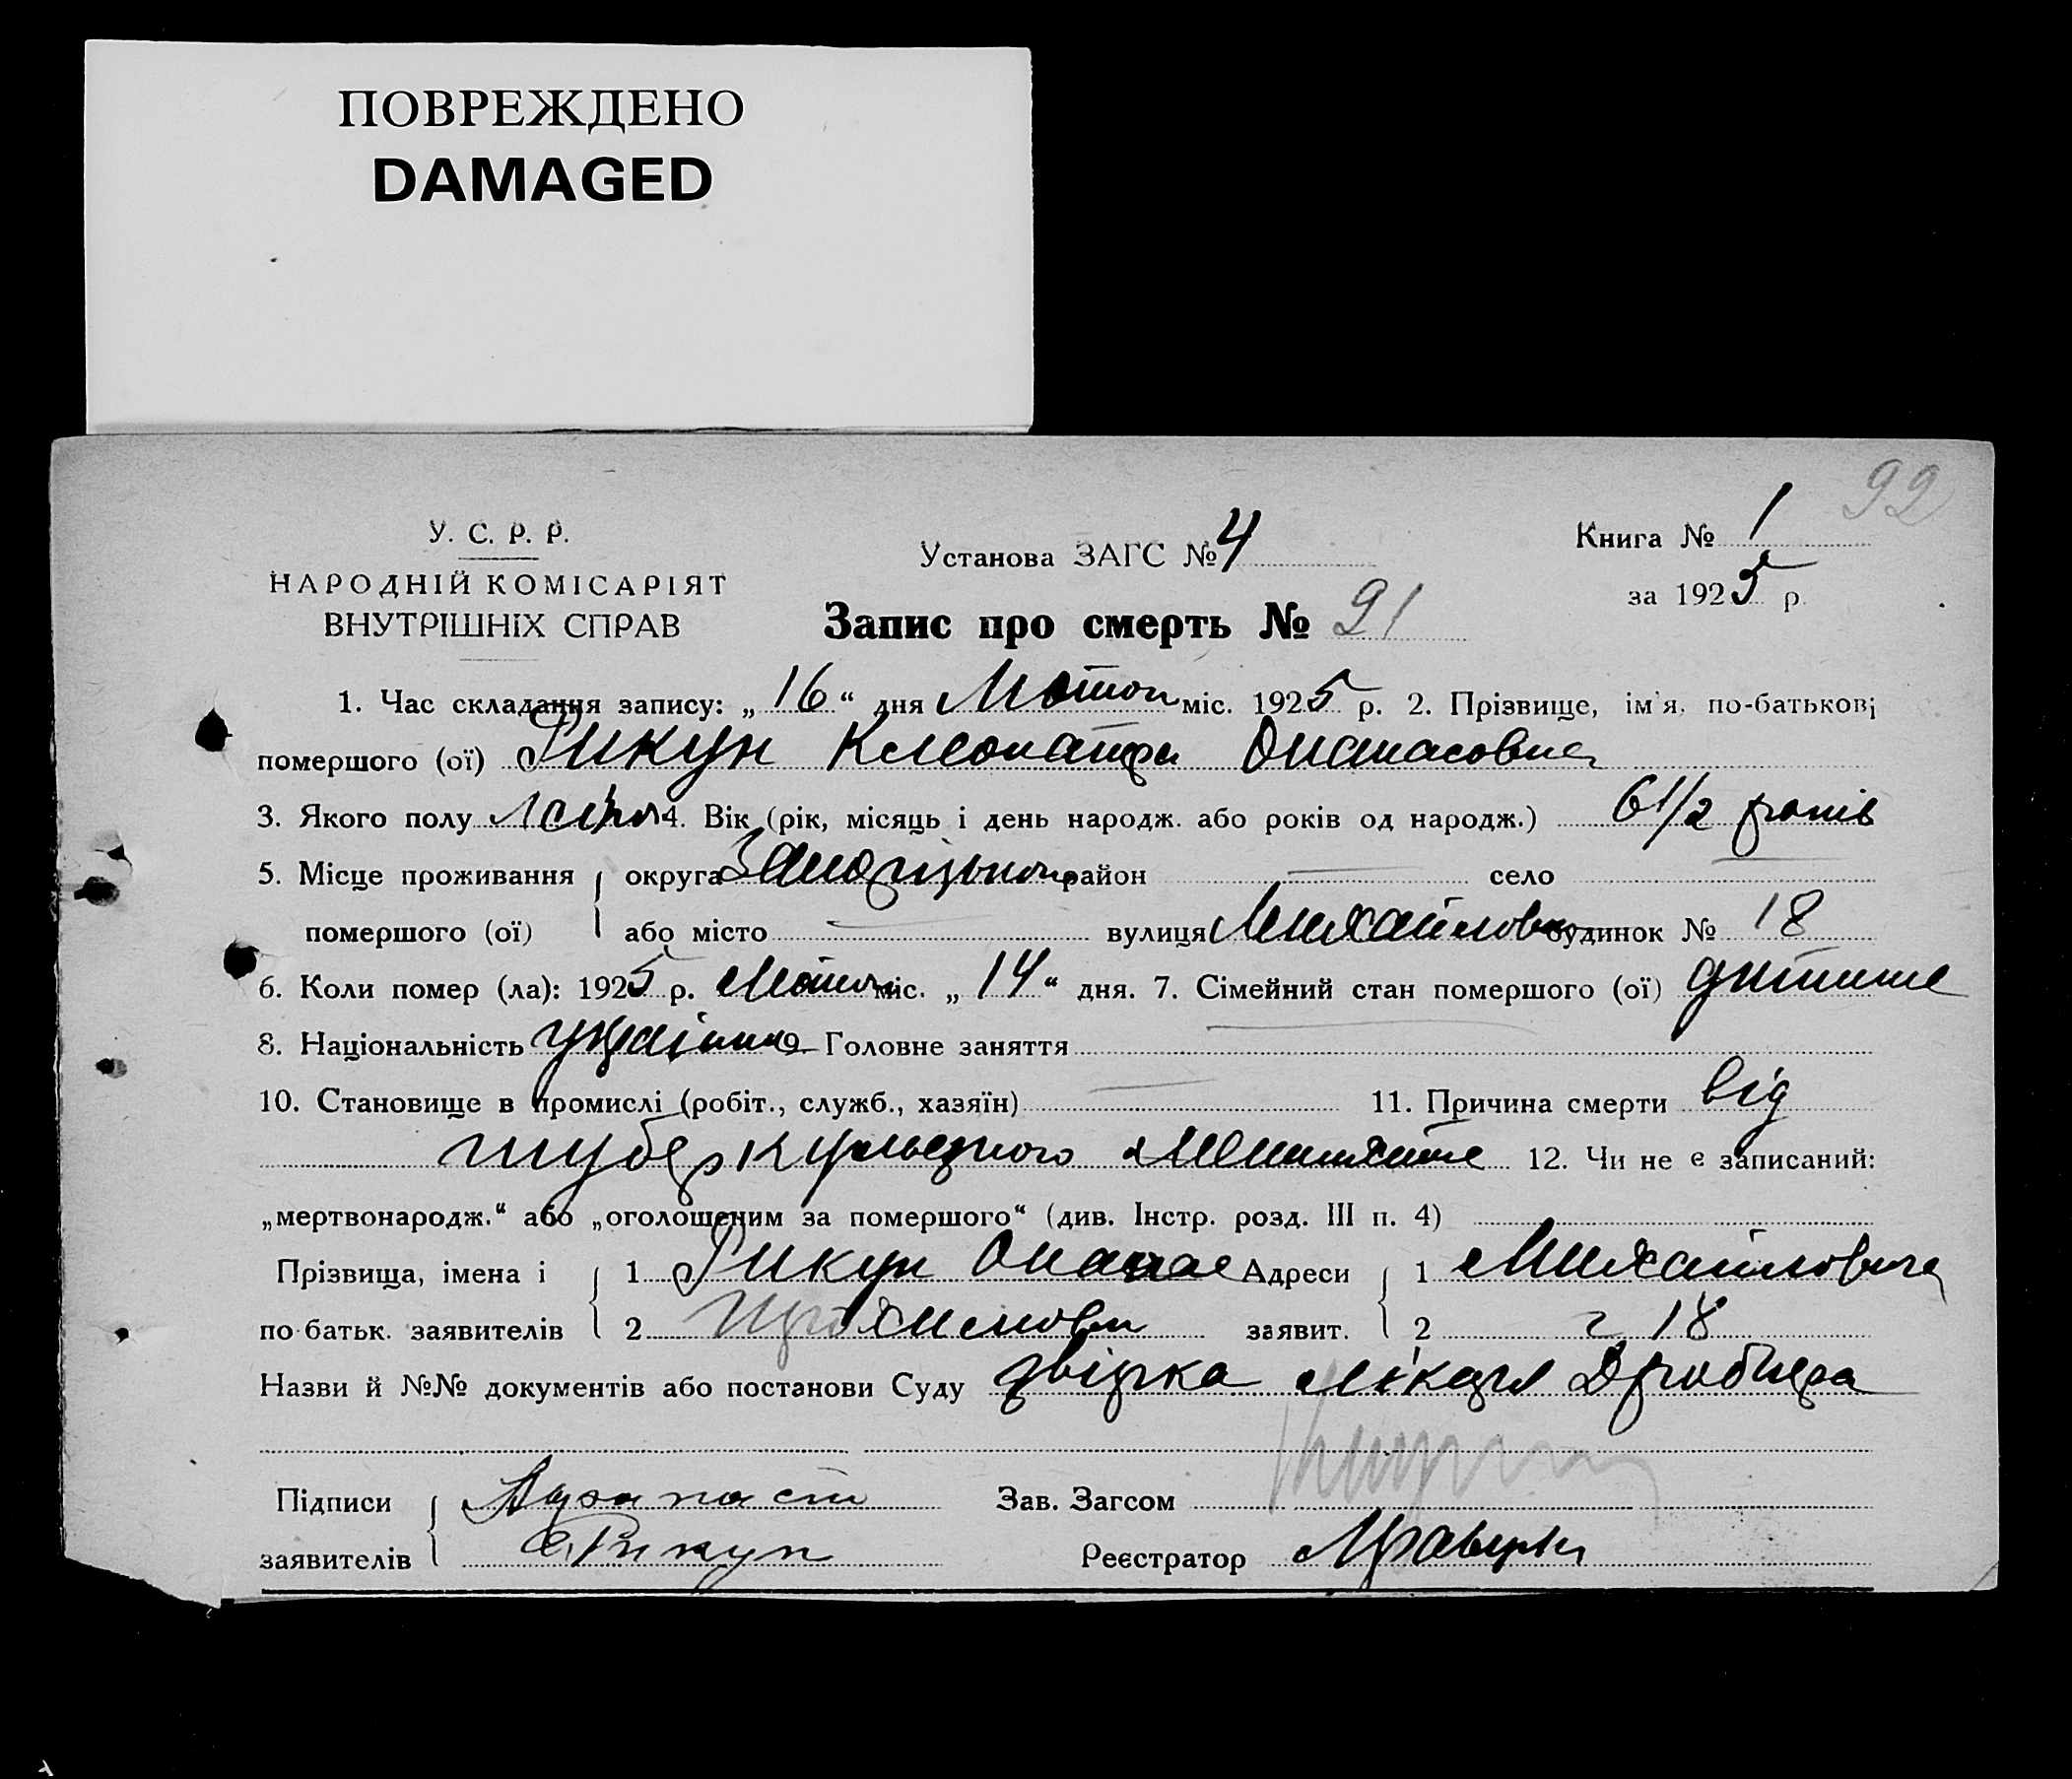 ПОВРЕЖДЕНО
DAMAGED
92
У. С. Р. Р.
НАРОДНІЙ КОМІСАРІЯТ
ВНУТРІШНІХ СПРАВ
Установа ЗАГС № 4
Книга № 1
за 1925 р.
Запис про смерть № 91
1. Час складання запису: „16“ дня Лютого міс. 1925 р. 2. Прізвище, ім'я, по-батькові
помершого (ої) Рикун Клеопатра Опанасовна
3. Якого полу 4. Вік (рік, місяць і день народж. або років од народж.) 6 1/2 років
5. Місце проживання округа Запорізького район — село
помершого (ої) або місто — вулиця Михайловська будинок № 18
6. Коли помер (ла): 1925 р. Лютого міс. „14“ дня. 7. Сімейний стан помершого (ої) дитина
8. Національність 9. Головне заняття
10. Становище в промислі (робіт., служб., хазяїн) — 11. Причина смерти від
туберкульозного менінгита 12. Чи не є записаний:
„мертвонародж.“ або „оголошеним за помершого“ (див. Інстр. розд. III п. 4)
Прізвища, імена і 1 Рикун Опанас Адреси 1
по батьк. заявителів 2 заявит. 2 18
Назви й №№ документів або постанови Суду довідка лікаря
Підписи Зав. Загсом
заявителів Рикун Реєстратор